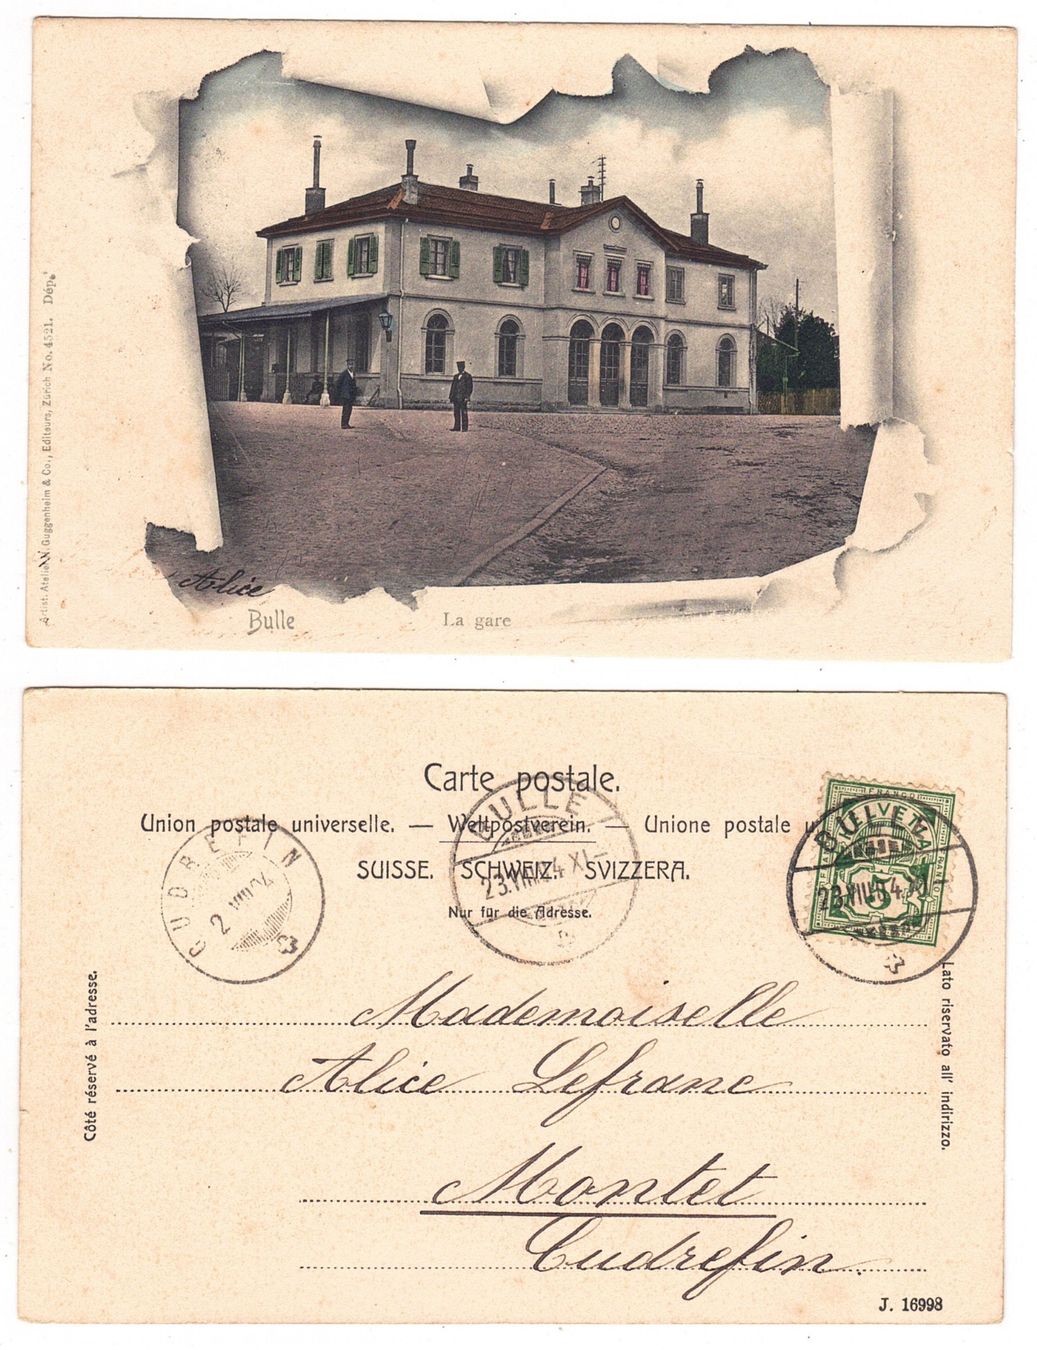 Artist. Atelier H. Guggenheim & Co., Editeurs, Zürich No. 4521. Dép.
Alice
Bulle
La gare
Carte postale.
Union postale universelle. — Weltpostverein. — Unione postale
SUISSE. SCHWEIZ. SVIZZERA.
Nur für die Adresse.
CUDREFIN
VIII 04
BULLE
23.VIII.04.XI–
FRANCO
HELVETIA
FRANCO
5
BULLE
23.VIII.04.XI
Côté réservé à l'adresse.
Lato riservato all' indirizzo.
Mademoiselle
Alice Lefranc
Montet
Cudrefin.
J. 16998